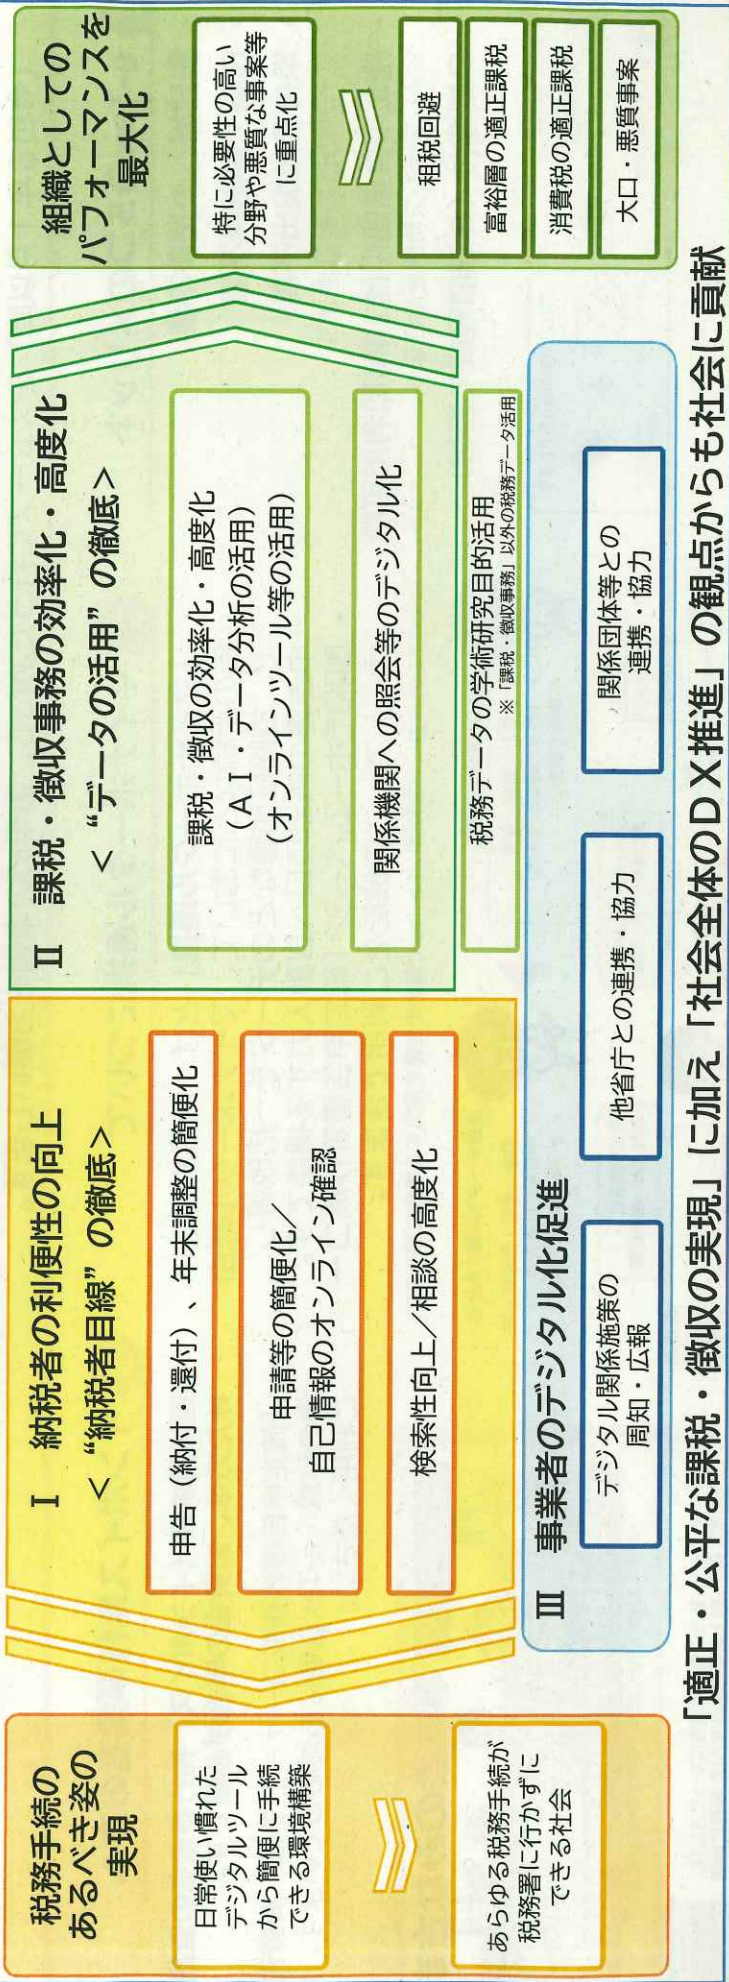 税務手続の
あるべき姿の
実現
日常使い慣れた
デジタルツール
から簡便に手続
できる環境構築
あらゆる税務手続が
税務署に行かずに
できる社会
Ⅰ 納税者の利便性の向上
＜“納税者目線”の徹底＞
申告（納付・還付）、年末調整の簡便化
申請等の簡便化／
自己情報のオンライン確認
検索性向上／相談の高度化
Ⅱ 課税・徴収事務の効率化・高度化
＜“データの活用”の徹底＞
課税・徴収の効率化・高度化
（ＡＩ・データ分析の活用）
（オンラインツール等の活用）
関係機関への照会等のデジタル化
税務データの学術研究目的活用
※「課税・徴収事務」以外の税務データ活用
組織としての
パフォーマンスを
最大化
特に必要性の高い
分野や悪質な事案等
に重点化
租税回避
富裕層の適正課税
消費税の適正課税
大口・悪質事案
Ⅲ 事業者のデジタル化促進
デジタル関係施策の
周知・広報
他省庁との連携・協力
関係団体等との
連携・協力
「適正・公平な課税・徴収の実現」に加え「社会全体のＤＸ推進」の観点からも社会に貢献